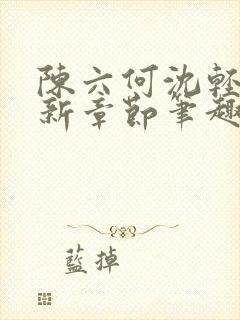 陳六何沈輕
新章節筆趣
藍掉